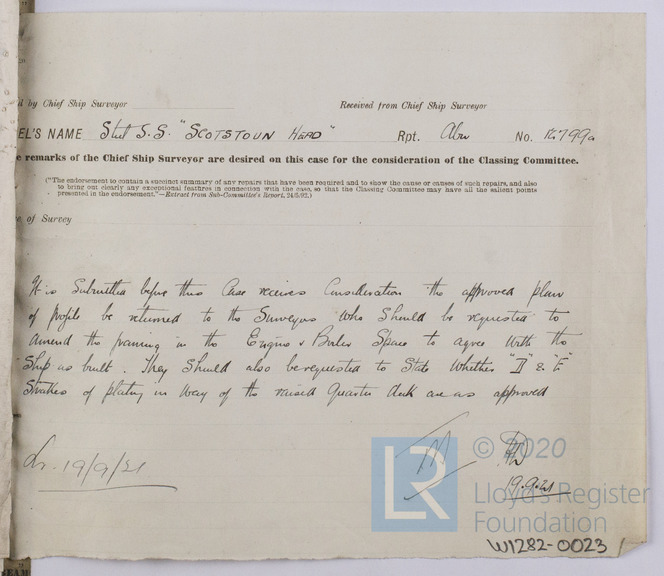 d by Chief Ship Surveyor
Received from Chief Ship Surveyor
EL'S NAME Stul S.S. "SCOTSTOUN HEAD" Rpt. Abn No. 12799a
e remarks of the Chief Ship Surveyor are desired on this case for the consideration of the Classing Committee.
("The endorsement to contain a succinct summary of any repairs that have been required and to show the cause or causes of such repairs, and also
to bring out clearly any exceptional features in connection with the case, so that the Classing Committee may have all the salient points
presented in the endorsement."—Extract from Sub-Committee's Report, 24/5/92.)
e, of Survey
It is Submitted before this Case receives Consideration the approved plan
of profile be returned to the Surveyors who should be requested to
amend the framing in the Engine & Boiler Space to agree with the
Ship as built. They should also be requested to State whether "D" & "E"
Strakes of plating in way of the raised Quarter deck are as approved
19/9/21
19.9.21
LR
© 2020
Lloyd's Register
Foundation
W1282-0023